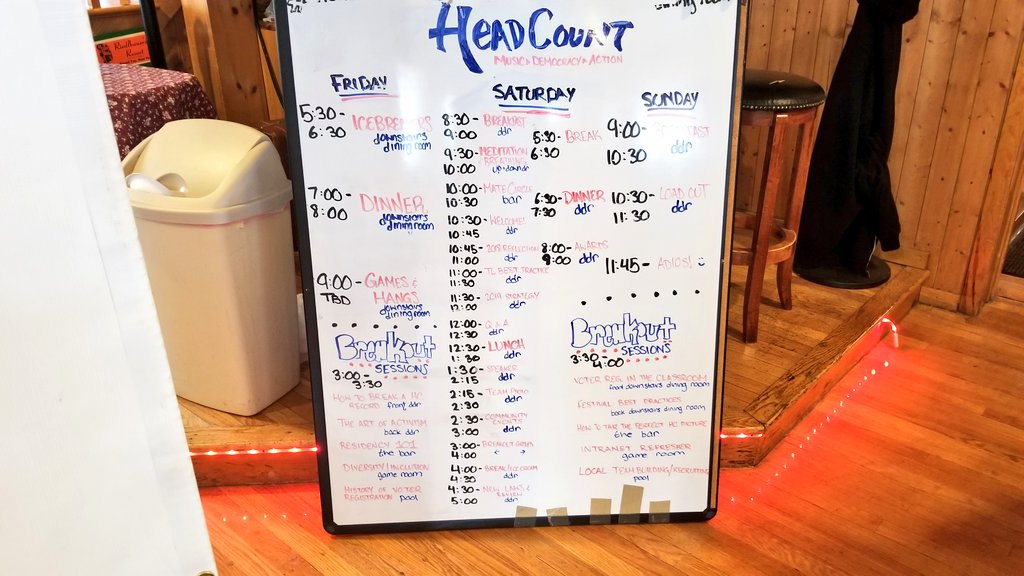 HEADCOUNT
MUSIC • DEMOCRACY • ACTION
FRIDAY
5:30-
6:30
ICEBREAKERS
downstairs
dining room
7:00-
8:00
DINNER
downstairs
dining room
9:00-
TBD
GAMES &
HANGS
downstairs
dining room
Breakout
SESSIONS
3:00-
3:30
HOW TO BREAK A HC
RECORD front ddr
THE ART OF ACTIVISM
back ddr
RESIDENCY 101
the bar
DIVERSITY/INCLUSION
game room
HISTORY OF VOTER
REGISTRATION pool
SATURDAY
8:30-
9:00
BREAKFAST
ddr
9:30-
10:00
MEDITATION
/BREATHING
10:00-
10:30
MATE CIRCLE
bar
10:30-
10:45
WELCOME!
ddr
10:45-
11:00
2018 REFLECTION
ddr
11:00-
11:30
TL BEST PRACTICE
ddr
11:30-
12:00
2019 STRATEGY
ddr
12:00-
12:30
Q&A
ddr
12:30-
1:30
LUNCH
ddr
1:30-
2:15
SPEAKER
ddr
2:15-
2:30
TEAM PHOTO
ddr
2:30-
3:00
COMMUNITY
EVENTS
ddr
3:00-
4:00
BREAKOUT
4:00-
4:30
BREAK/ICE CREAM
ddr
4:30-
5:00
NEW LAWS &
REVIEW
ddr
5:30-
6:30
BREAK
6:30-
7:30
DINNER
ddr
8:00-
9:00
AWARDS
ddr
SUNDAY
9:00-
10:30
BREAKFAST
ddr
10:30-
11:30
LOAD OUT
ddr
11:45-
ADIOS!
Breakout
SESSIONS
3:30-
4:00
VOTER REG. IN THE CLASSROOM
front downstairs dining room
FESTIVAL BEST PRACTICES
back downstairs dining room
HOW TO TAKE THE PERFECT HC PICTURE
the bar
INTRANET REFRESHER
game room
LOCAL TEAM BUILDING/RECRUITING
pool